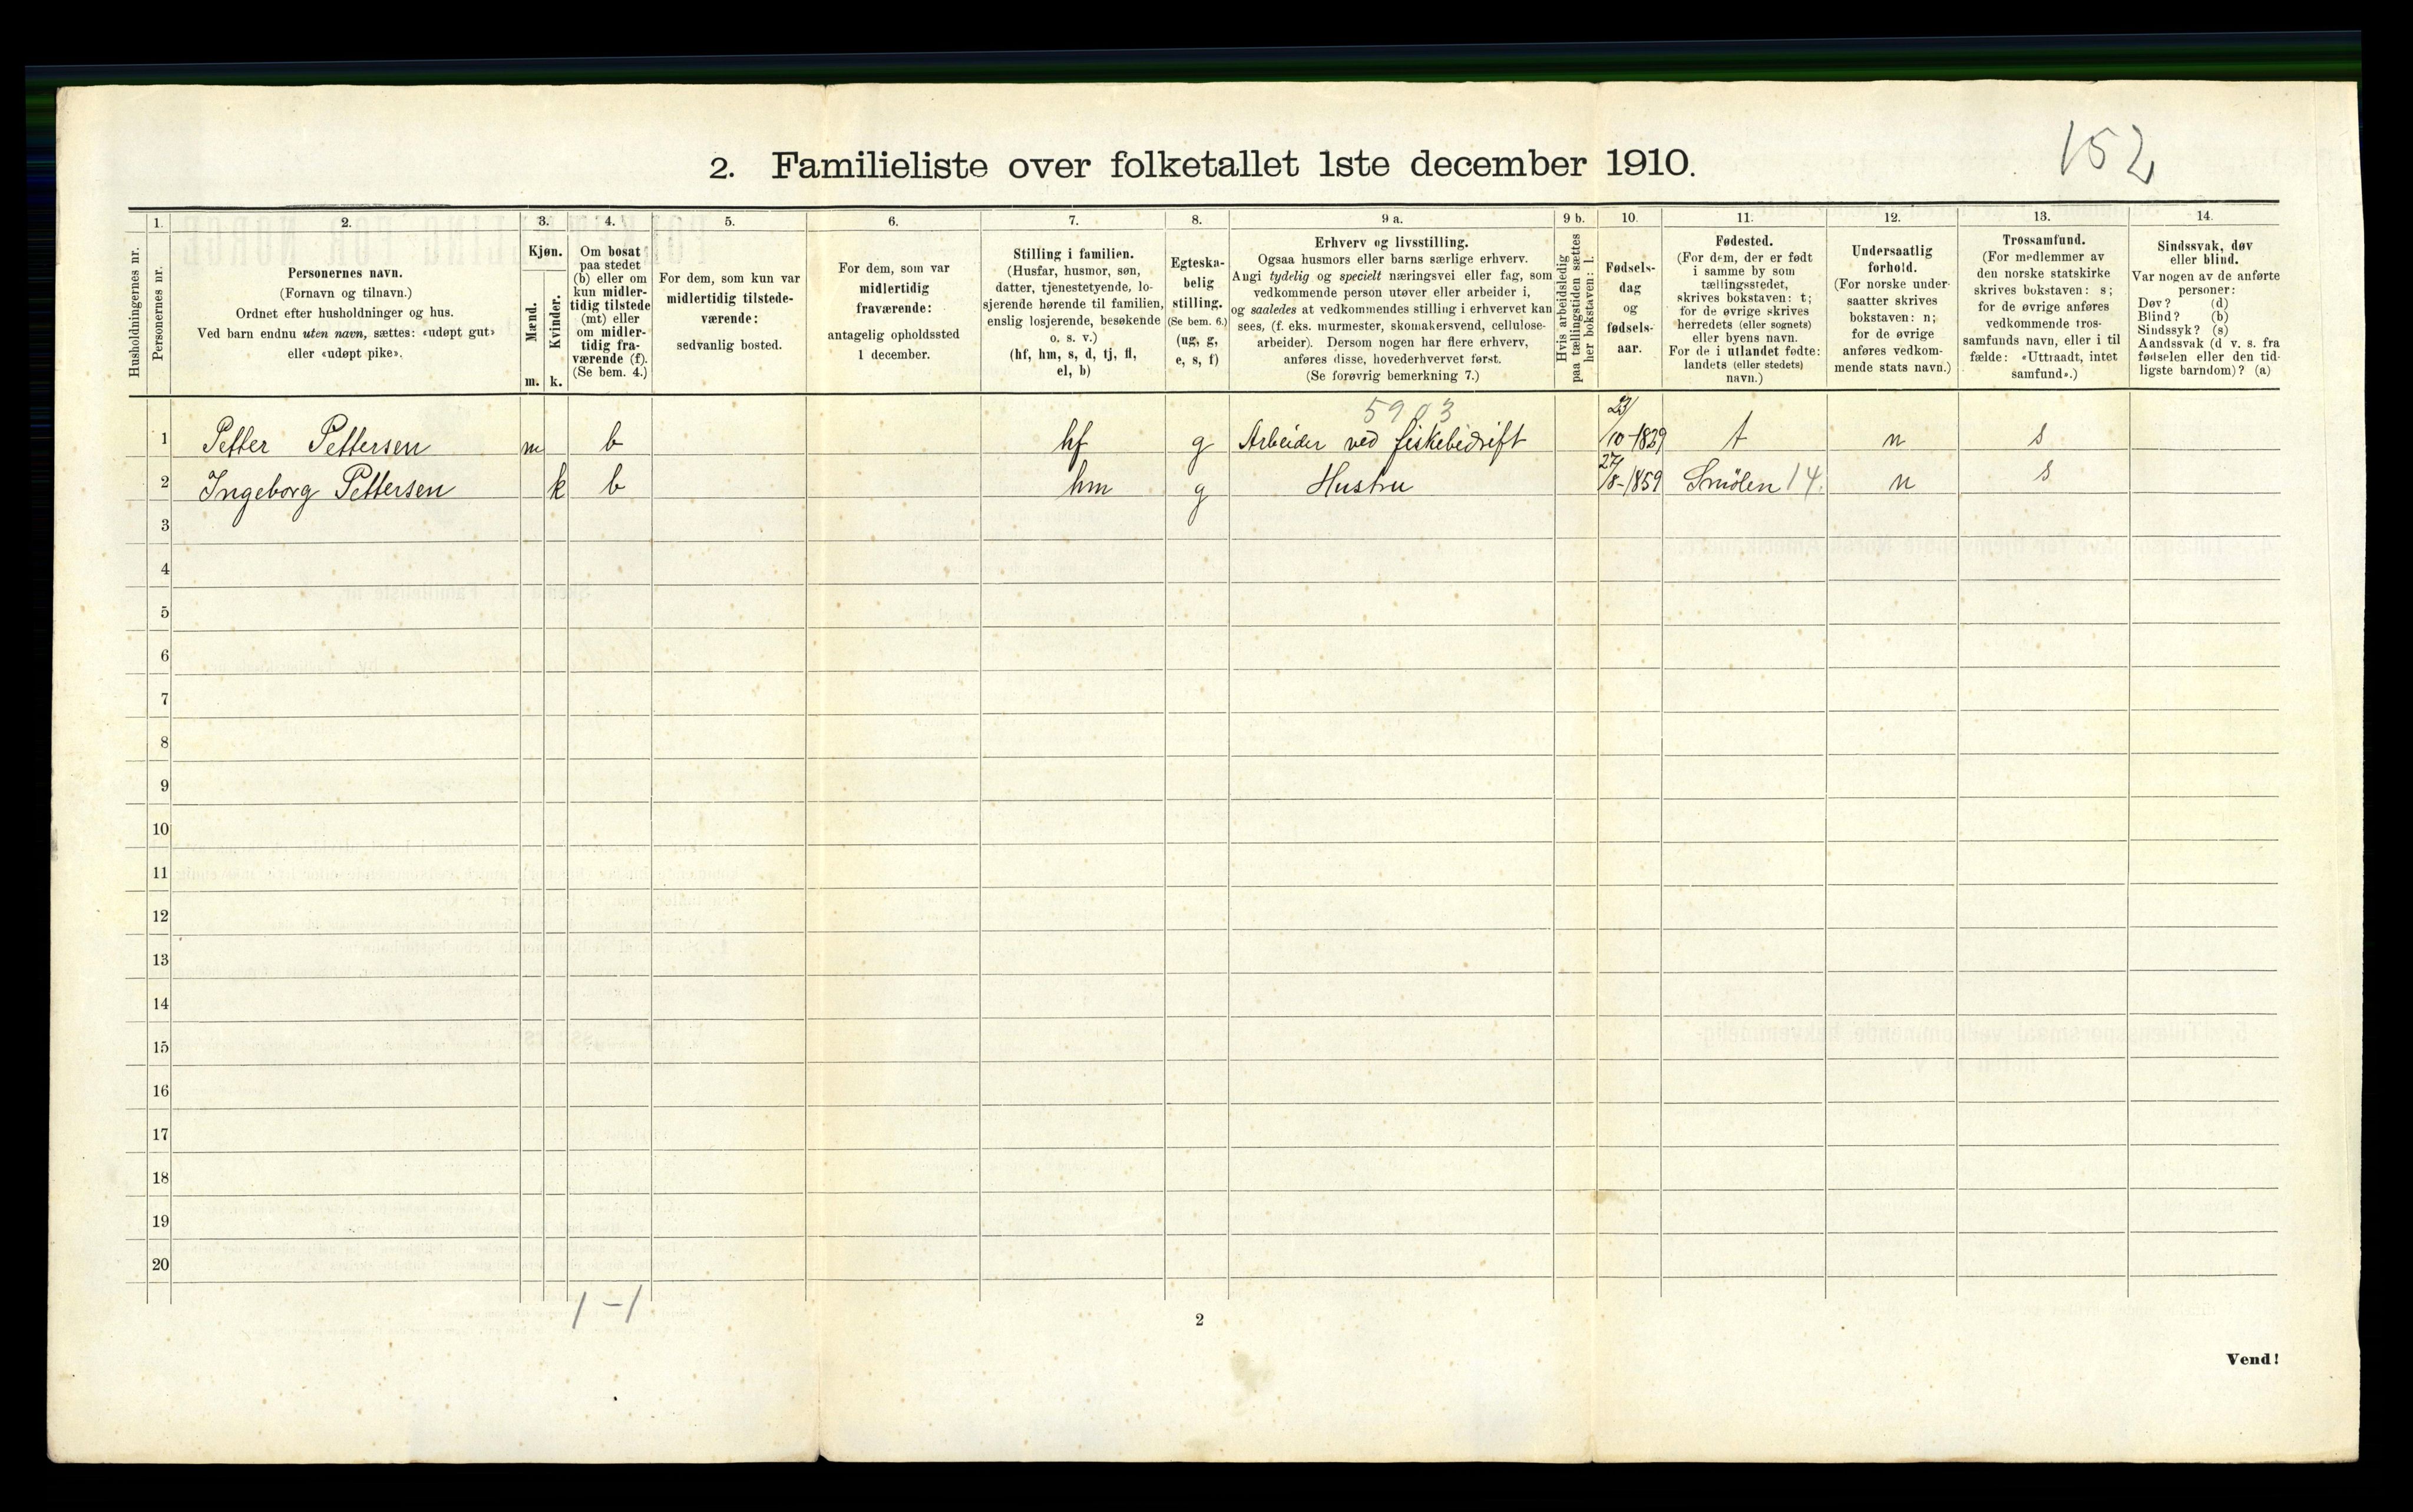 152
2. Familieliste over folketallet 1ste december 1910.
Husholdningernes nr.
1.
Personernes nr.
2.
Personernes navn.
(Fornavn og tilnavn.)
Ordnet efter husholdninger og hus.
Ved barn endnu uten navn, sættes: «udøpt gut»
eller «udøpt pike».
3.
Kjøn.
Mænd.
Kvinder.
m. k.
4.
Om bosat
paa stedet
(b) eller om
kun midler-
tidig tilstede
(mt) eller
om midler-
tidig fra-
værende (f).
(Se bem. 4.)
5.
For dem, som kun var
midlertidig tilstede-
værende:
sedvanlig bosted.
6.
For dem, som var
midlertidig
fraværende:
antagelig opholdssted
1 december.
7.
Stilling i familien.
(Husfar, husmor, søn,
datter, tjenestetyende, lo-
sjerende hørende til familien,
enslig losjerende, besøkende
o. s. v.)
(hf, hm, s, d, tj, fl,
el, b)
8.
Egteska-
belig
stilling.
(Se bem. 6.)
(ug, g,
e, s, f)
9 a.
Erhverv og livsstilling.
Ogsaa husmors eller barns særlige erhverv.
Angi tydelig og specielt næringsvei eller fag, som
vedkommende person utøver eller arbeider i,
og saaledes at vedkommendes stilling i erhvervet kan
sees, (f. eks. murmester, skomakersvend, cellulose-
arbeider). Dersom nogen har flere erhverv,
anføres disse, hovederhvervet først.
(Se forøvrig bemerkning 7.)
9 b.
Hvis arbeidsledig
paa tællingstiden sættes
her bokstaven: l.
10.
Fødsels-
dag
og
fødsels-
aar.
11.
Fødested.
(For dem, der er født
i samme by som
tællingsstedet,
skrives bokstaven: t;
for de øvrige skrives
herredets (eller sognets)
eller byens navn.
For de i utlandet fødte:
landets (eller stedets)
navn.)
12.
Undersaatlig
forhold.
(For norske under-
saatter skrives
bokstaven: n;
for de øvrige
anføres vedkom-
mende stats navn.)
13.
Trossamfund.
(For medlemmer av
den norske statskirke
skrives bokstaven: s;
for de øvrige anføres
vedkommende tros-
samfunds navn, eller i til
fælde: «Uttraadt, intet
samfund».)
14.
Sindssvak, døv
eller blind.
Var nogen av de anførte
personer:
Døv? (d)
Blind? (b)
Sindssyk? (s)
Aandssvak (d v. s. fra
fødselen eller den tid-
ligste barndom)? (a)
5903
1 Petter Pettersen m b hf g Arbeider ved fiskebedrift 23/10-1839 t n s
2 Ingeborg Pettersen k b hm g Hustru 27/8-1859 Smölen 14. n s
3
4
5
6
7
8
9
10
11
12
13
14
15
16
17
18
19
20
1-1
2
Vend!